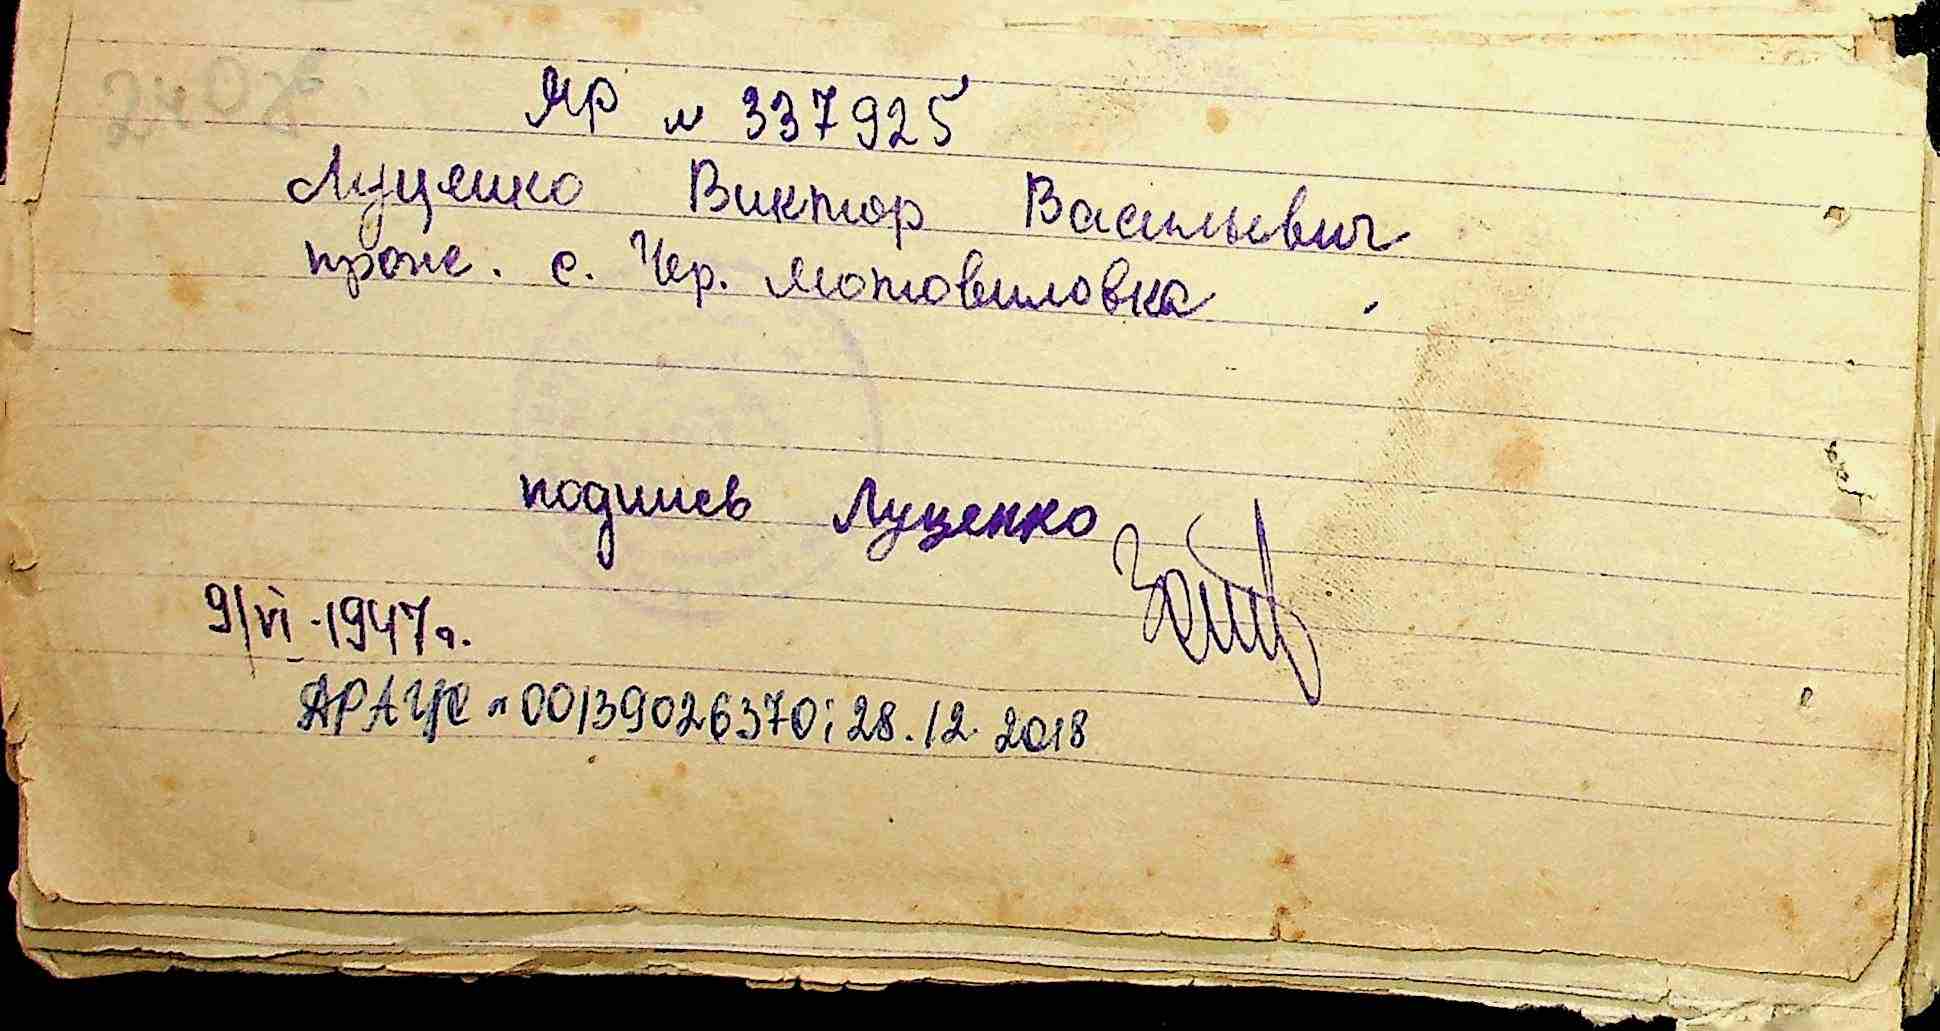 ЯР № 337925
Луценко Виктор Васильевич
прож. с. Чер. Мотовиловка
подпись Луценко
9/VI-1947г.
ДРАЦС № 00139026370; 28.12.2018